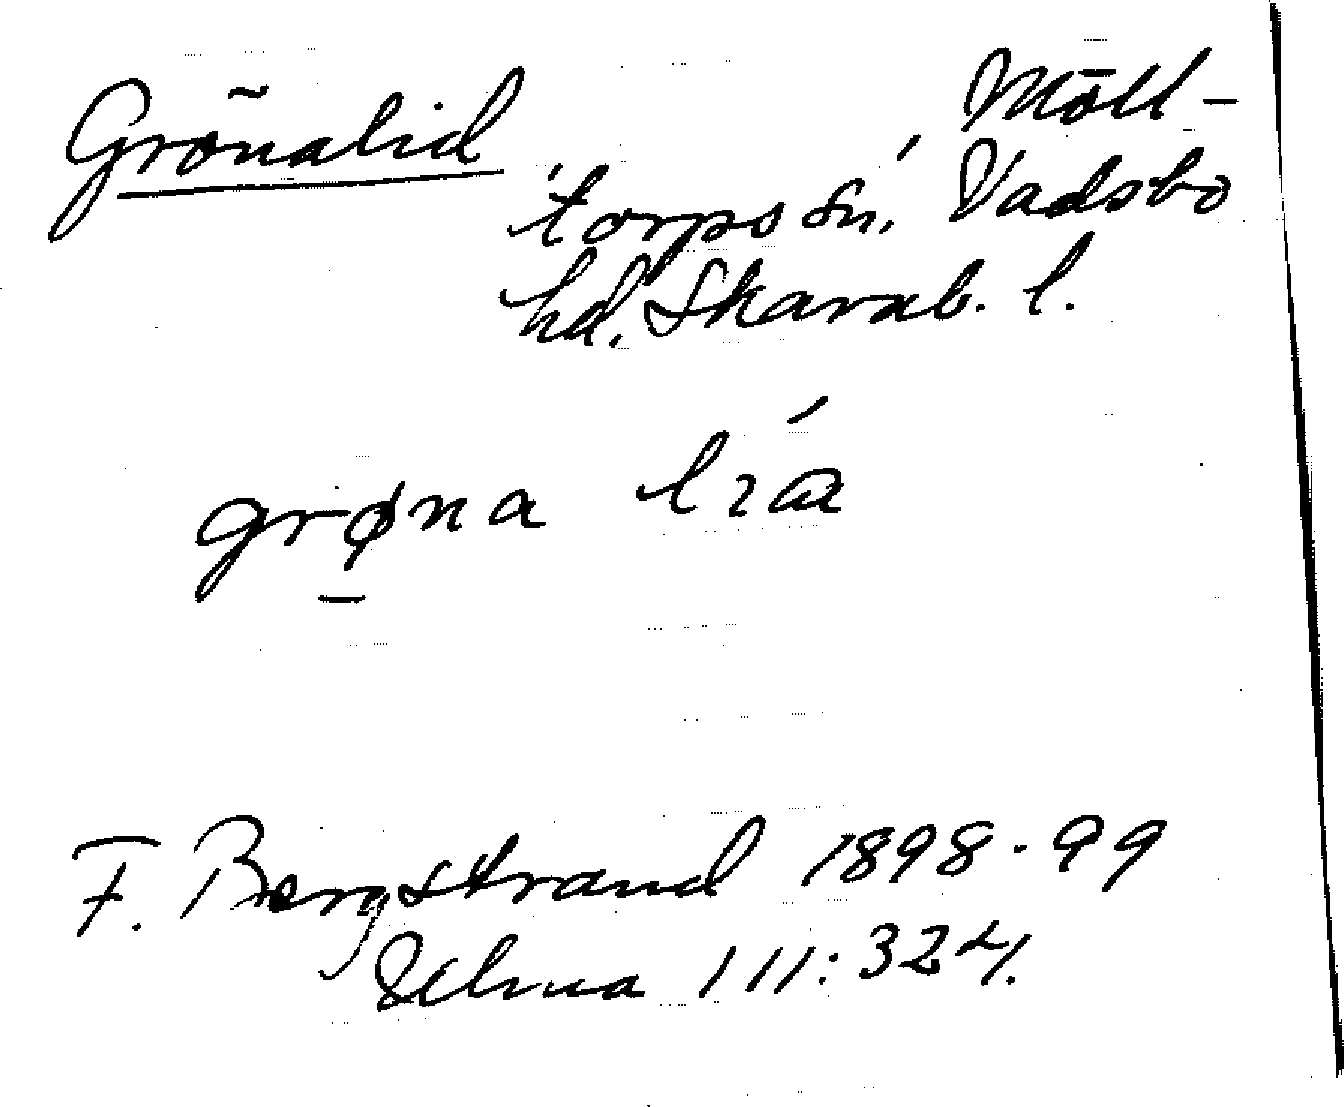 Grönalid, Möll-
torps sn, Vadsbo
hd. Skarab. l.
grøna lıá
F. Bergstrand 1898-99
111:324.